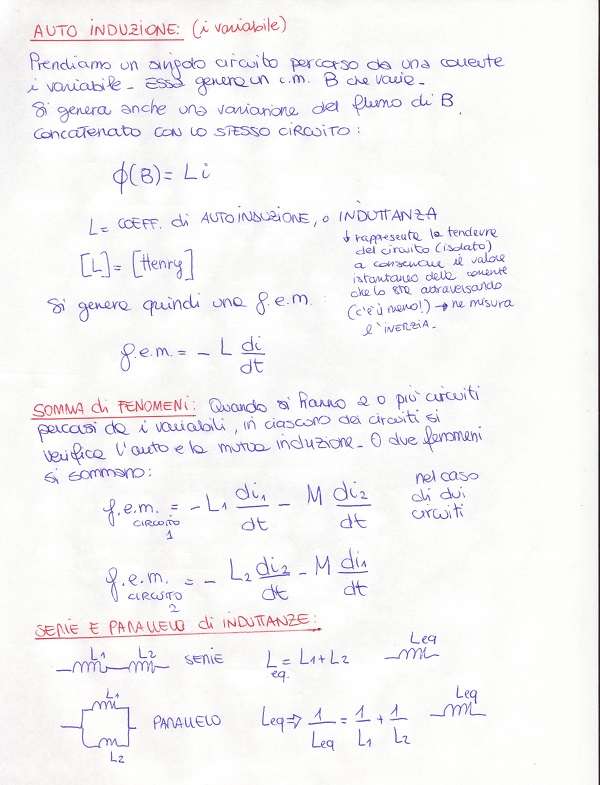 AUTO INDUZIONE: (i variabile)
Prendiamo un singolo circuito percorso da una corrente
i variabile. Essa genera un c.m. B che varia.
Si genera anche una variazione del flusso di B
concatenato con lo STESSO CIRCUITO:
ϕ(B) = Li
L = COEFF. di AUTOINDUZIONE, o INDUTTANZA
↓ rappresenta la tendenza
del circuito (isolato)
a conservare il valore
istantaneo della corrente
che lo sta attraversando
(c'è il meno!) → ne misura
l'INERZIA.
[L] = [Henry]
Si genera quindi una f.e.m.:
f.e.m. = - L di/dt
SOMMA di FENOMENI: Quando si hanno 2 o più circuiti
percorsi da i variabili, in ciascuno dei circuiti si
verifica l'auto e la mutua induzione. O due fenomeni
si sommano:
f.e.m. CIRCUITO 1 = - L1 di1/dt - M di2/dt
nel caso
di due
circuiti
f.e.m. CIRCUITO 2 = - L2 di2/dt - M di1/dt
SERIE E PARALLELO di INDUTTANZE:
L1 L2 SERIE L eq. = L1 + L2 Leq
L1 L2 PARALLELO Leq ⇒ 1/Leq = 1/L1 + 1/L2 Leq